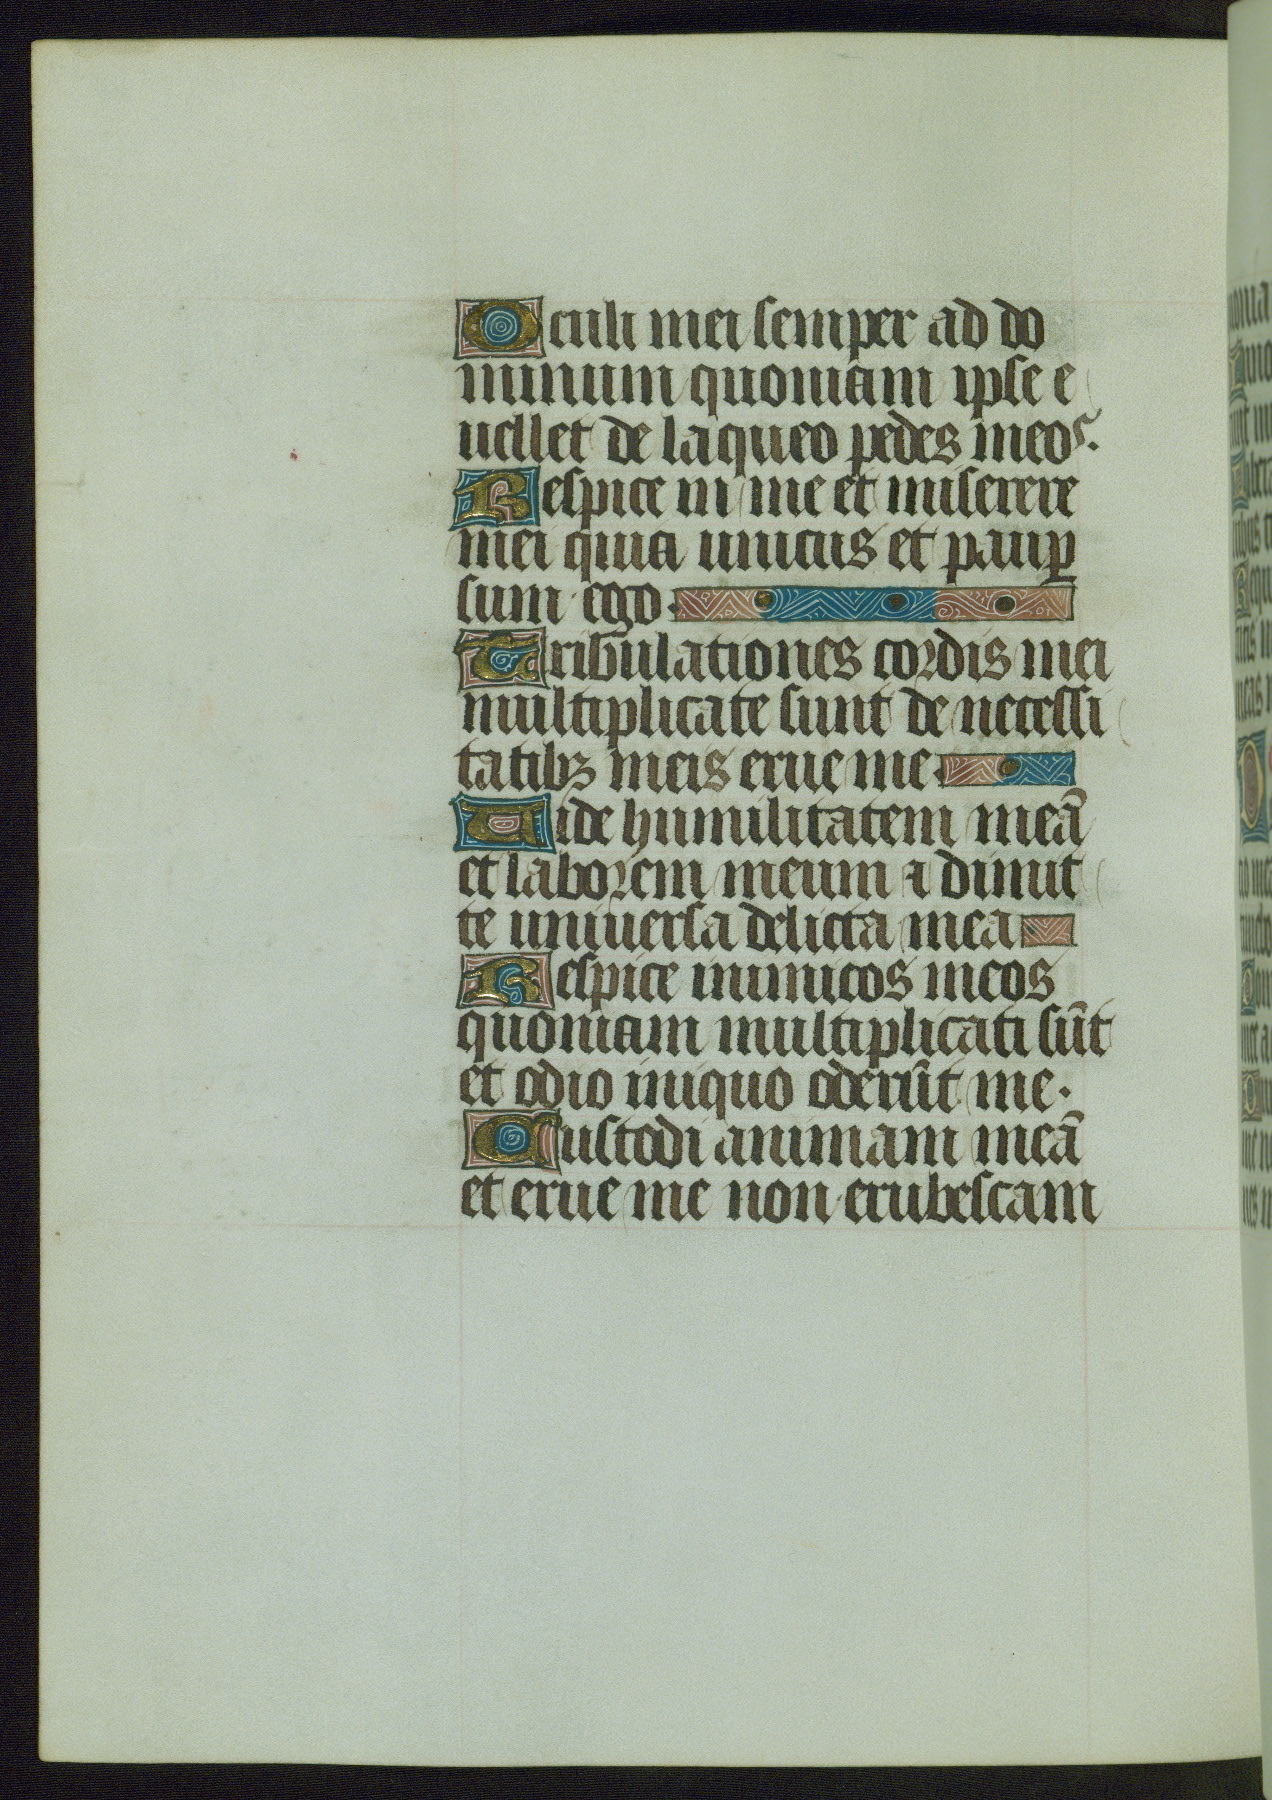 Oculi mei semper ad do
minum quoniam ipse e
uellet de laqueo pedes meos.
Respice in me et miserere
mei quia unicus et paup̲
sum ego.
Tribulationes cordis mei
multiplicate sunt de necessi
tatibꝫ meis erue me.
Uide humilitatem meā
et laborem meum ⁊ dimit
te uniuersa delicta mea
Respice inimicos meos
quoniam multiplicati sūt
et odio iniquo oderūt me.
Custodi animam meā
et erue me non erubescam